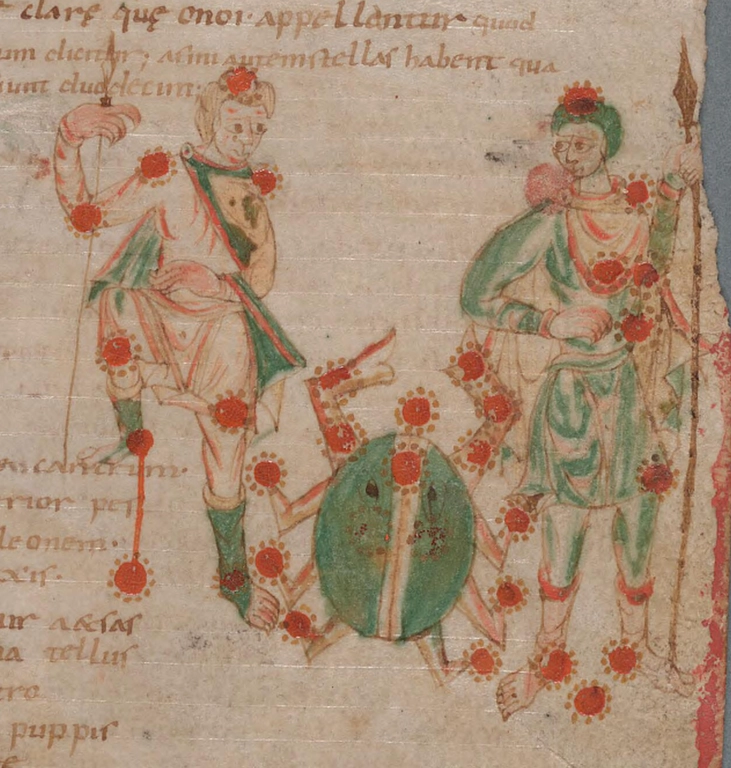 clarę quę onoi appellantur quod
um dicitur; asini autem stellas habent qua
sunt duodecim.
cancrum.
rior pes
leonem.
axis.
tellus
puppis